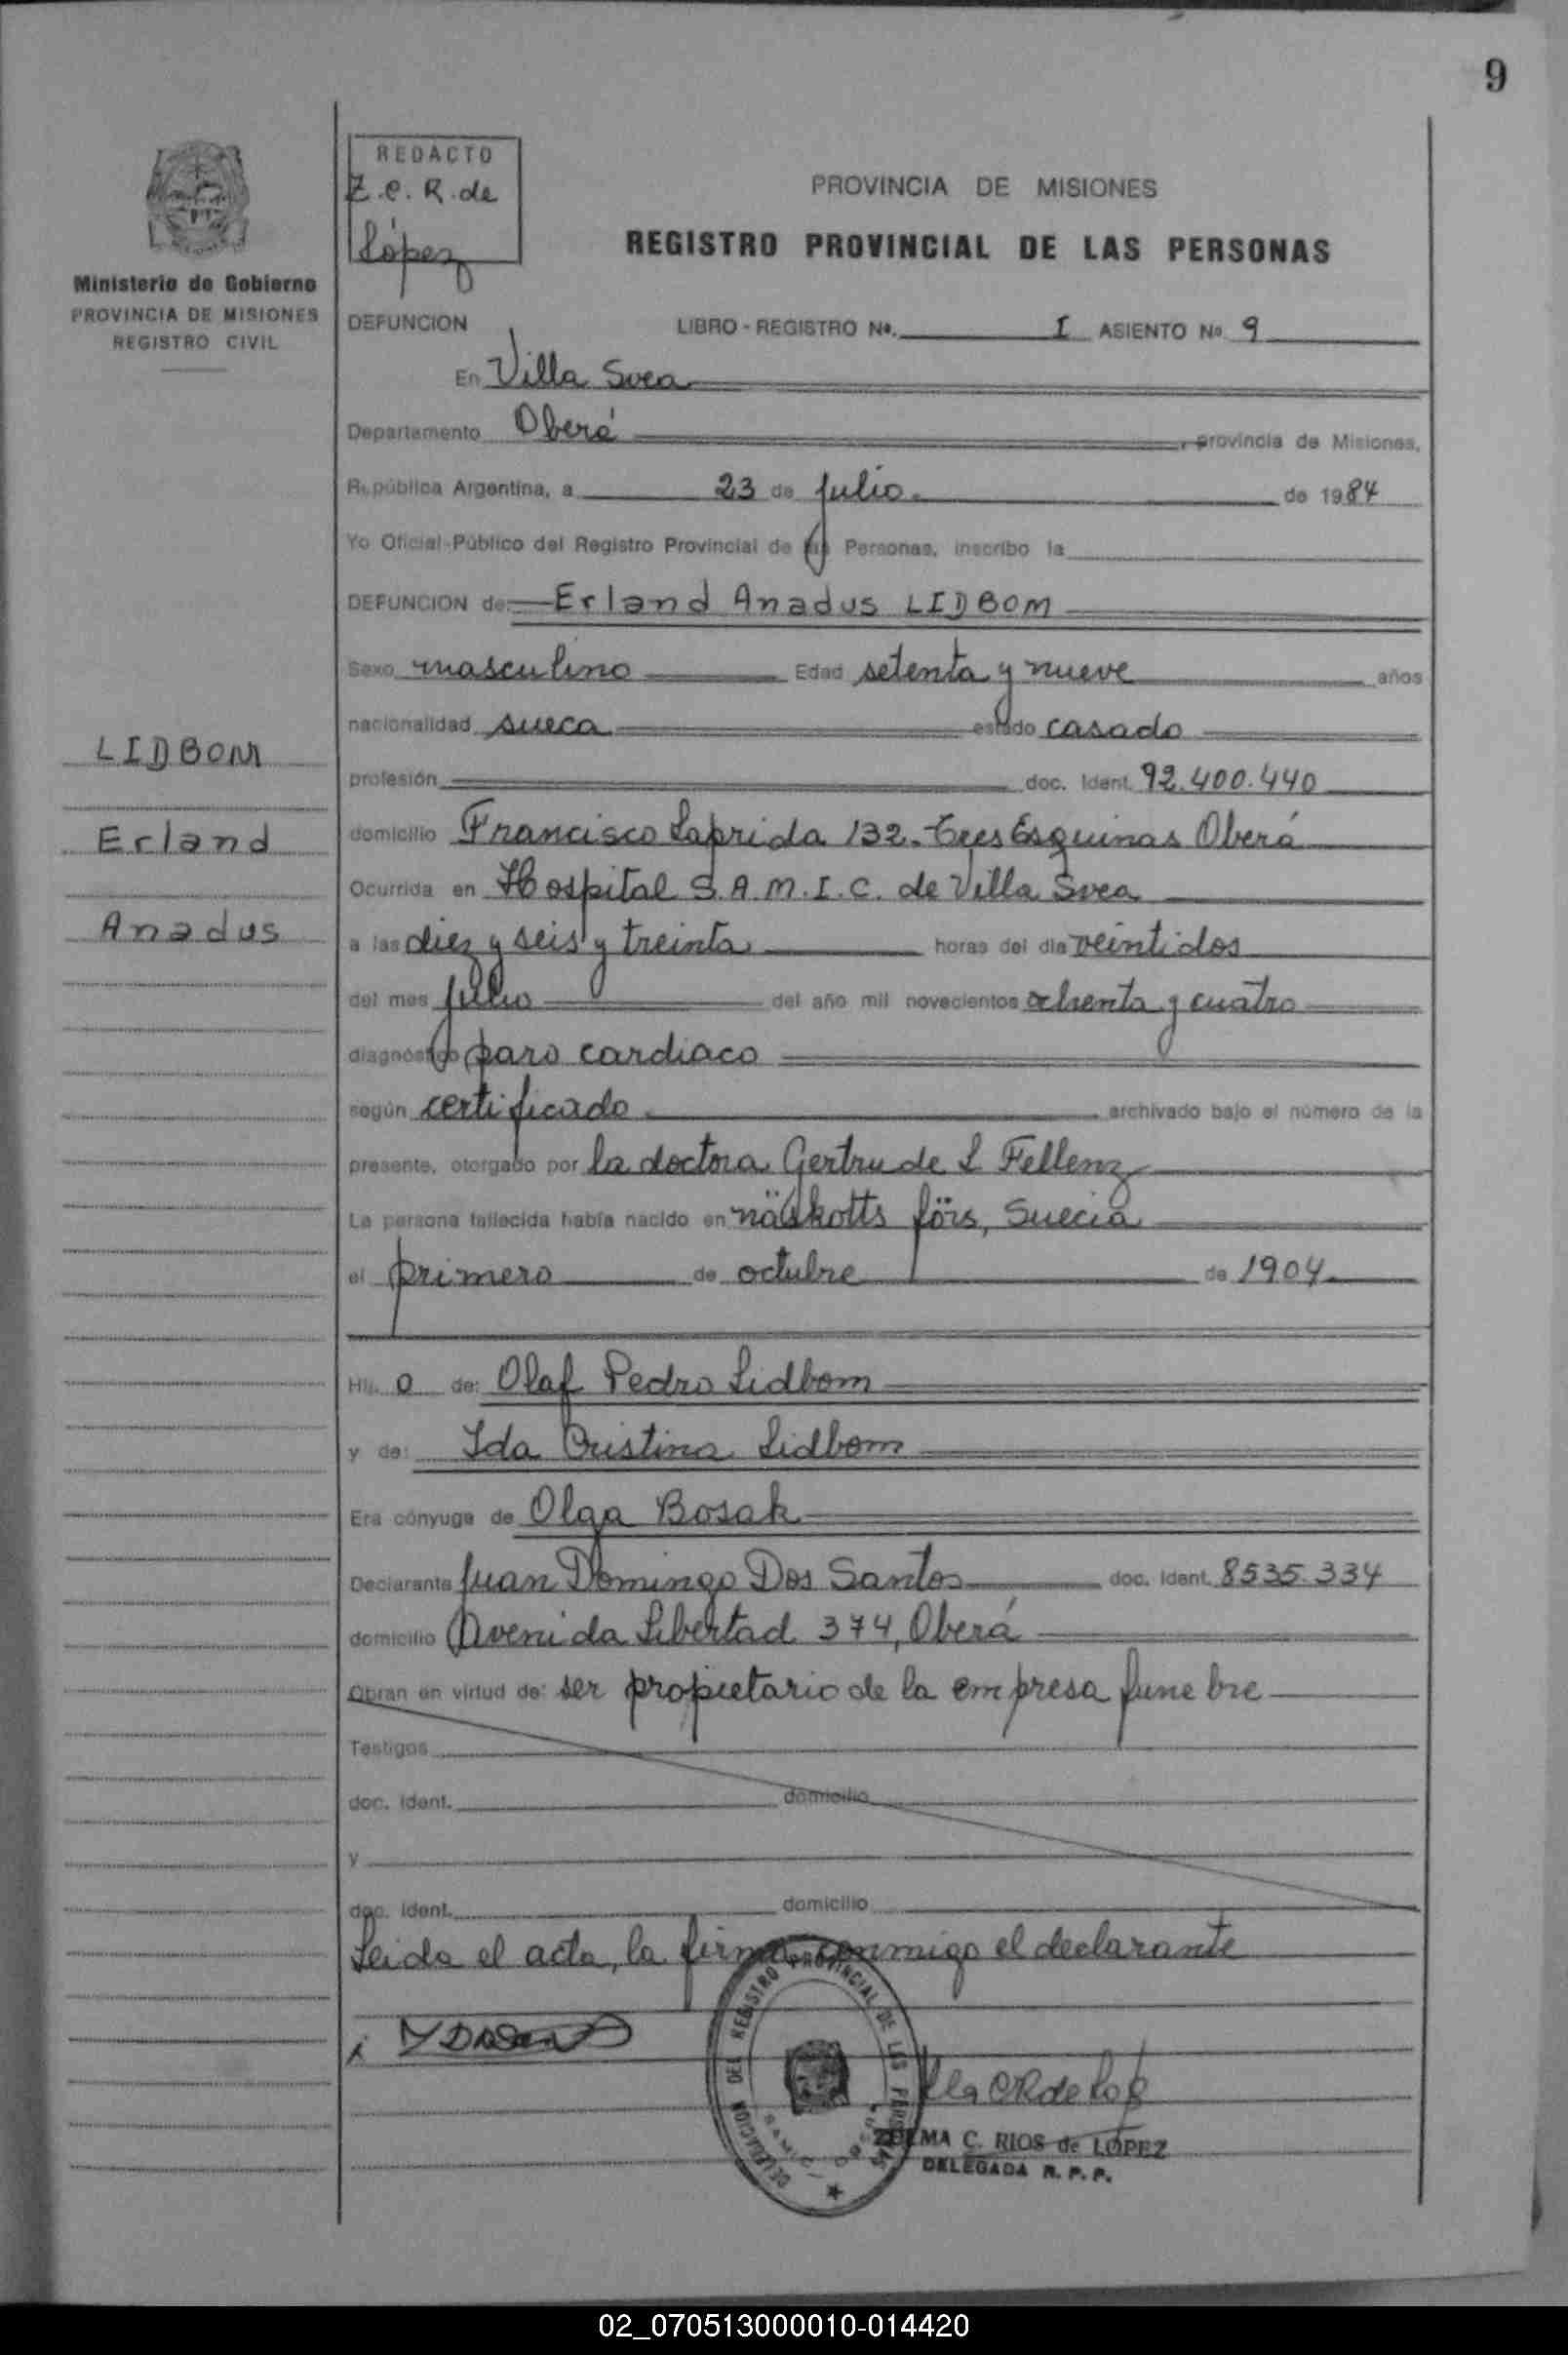 9
REDACTO
Z.C.R. de
López
Ministerio de Gobierno
PROVINCIA DE MISIONES
REGISTRO CIVIL
PROVINCIA DE MISIONES
REGISTRO PROVINCIAL DE LAS PERSONAS
DEFUNCION LIBRO - REGISTRO Nº. I ASIENTO Nº 9
En Villa Svea
Departamento Oberá, provincia de Misiones,
República Argentina, a 23 de julio de 1984
Yo Oficial Público del Registro Provincial de las Personas, inscribo la
DEFUNCION de: Erland Anadus LIDBOM
Sexo masculino Edad setenta y nueve años
nacionalidad sueca estado casado
LIDBOM
profesión doc. Ident. 92.400.440
Erland
domicilio Francisco Laprida 132. Tres Esquinas Oberá
Ocurrida en Hospital S.A.M.I.C. de Villa Svea
Anadus
a las diez y seis y treinta horas del día veintidos
del mes julio del año mil novecientos ochenta y cuatro
diagnóstico paro cardiaco
según certificado archivado bajo el número de la
presente, otorgado por la doctora Gertrude L Fellenz
La persona fallecida había nacido en näskotts förs, Suecia
el primero de octubre de 1904
Hij o de: Olaf Pedro Lidbom
y de: Ida Cristina Lidbom
Era cónyuge de Olga Bosak
Declarante Juan Domingo Dos Santos doc. Ident. 8535.334
domicilio Avenida Libertad 374, Oberá
Obran en virtud de: ser propietario de la empresa funebre
Testigos
doc. ident. domicilio
y
doc. ident. domicilio
Leida el acta, la firma conmigo el declarante
DELEGACION DEL REGISTRO PROVINCIAL DE LAS PERSONAS
ZULMA C. RIOS de LOPEZ
DELEGADA R. P. P.
02_070513000010-014420